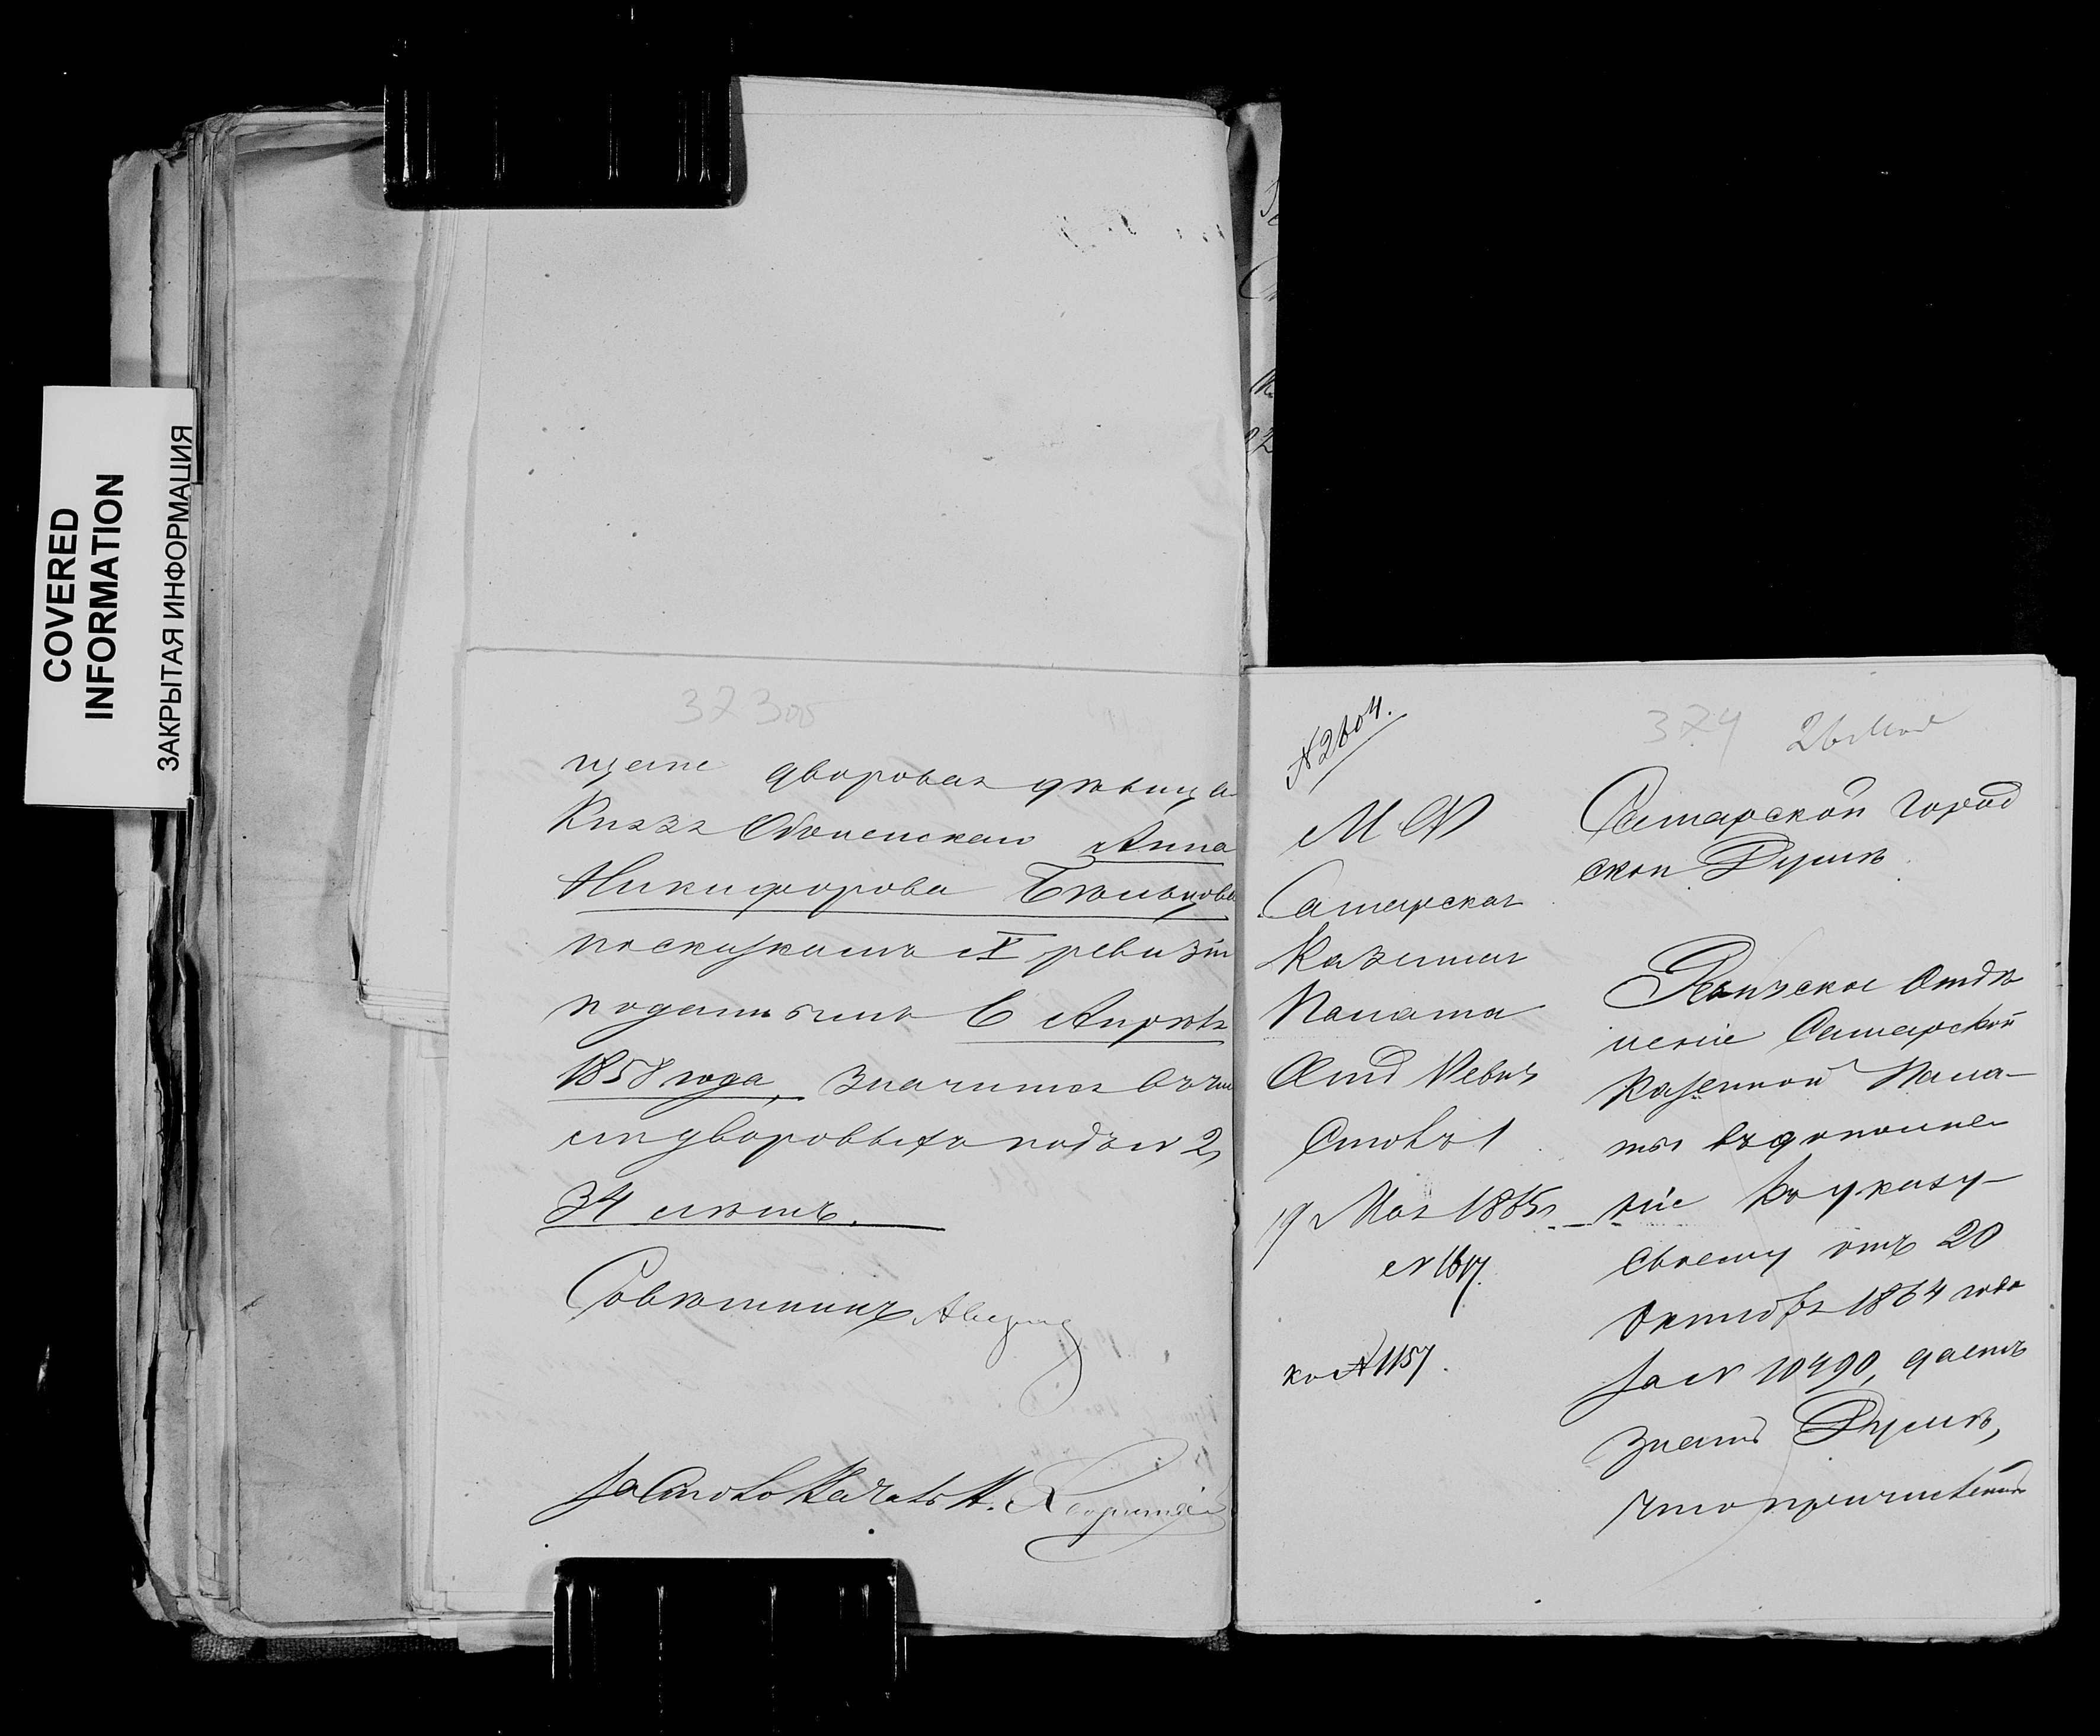 COVERED
INFORMATION
ЗАКРЫТАЯ ИНФОРМАЦИЯ
373 об
щане дворовая дѣвица
Князя Оболенскаго Анна
Никифорова Бѣльцова
по сказкамъ X ревизіи
поданнымъ 6 Апрѣля
1858 года, значится въ чи
слѣ дворовыхъ подъ № 2,
34 лѣтъ.
Совѣтникъ
За Столоначальн.
№ 2604.
М Ф
Самарская
Казенная
Палата
Отд Ревиз
Столъ 1
19 Мая 1865
№ 1617.
ко № 1157.
374 26 Мая
Самарской Город
ской Думѣ
Ревизское Отдѣ
леніе Самарской
Казенной Пала-
ты въ дополне
ніе къ указу-
своему отъ 20
Октября 1864 года
за № 10490, даетъ
знать Думѣ,
что причисленная